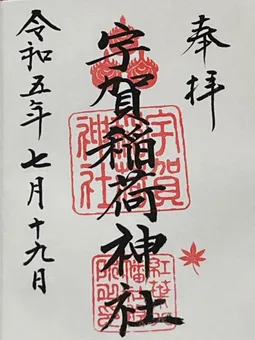 奉拝
宇賀稲荷神社
令和五年七月十九日
宇賀
神社